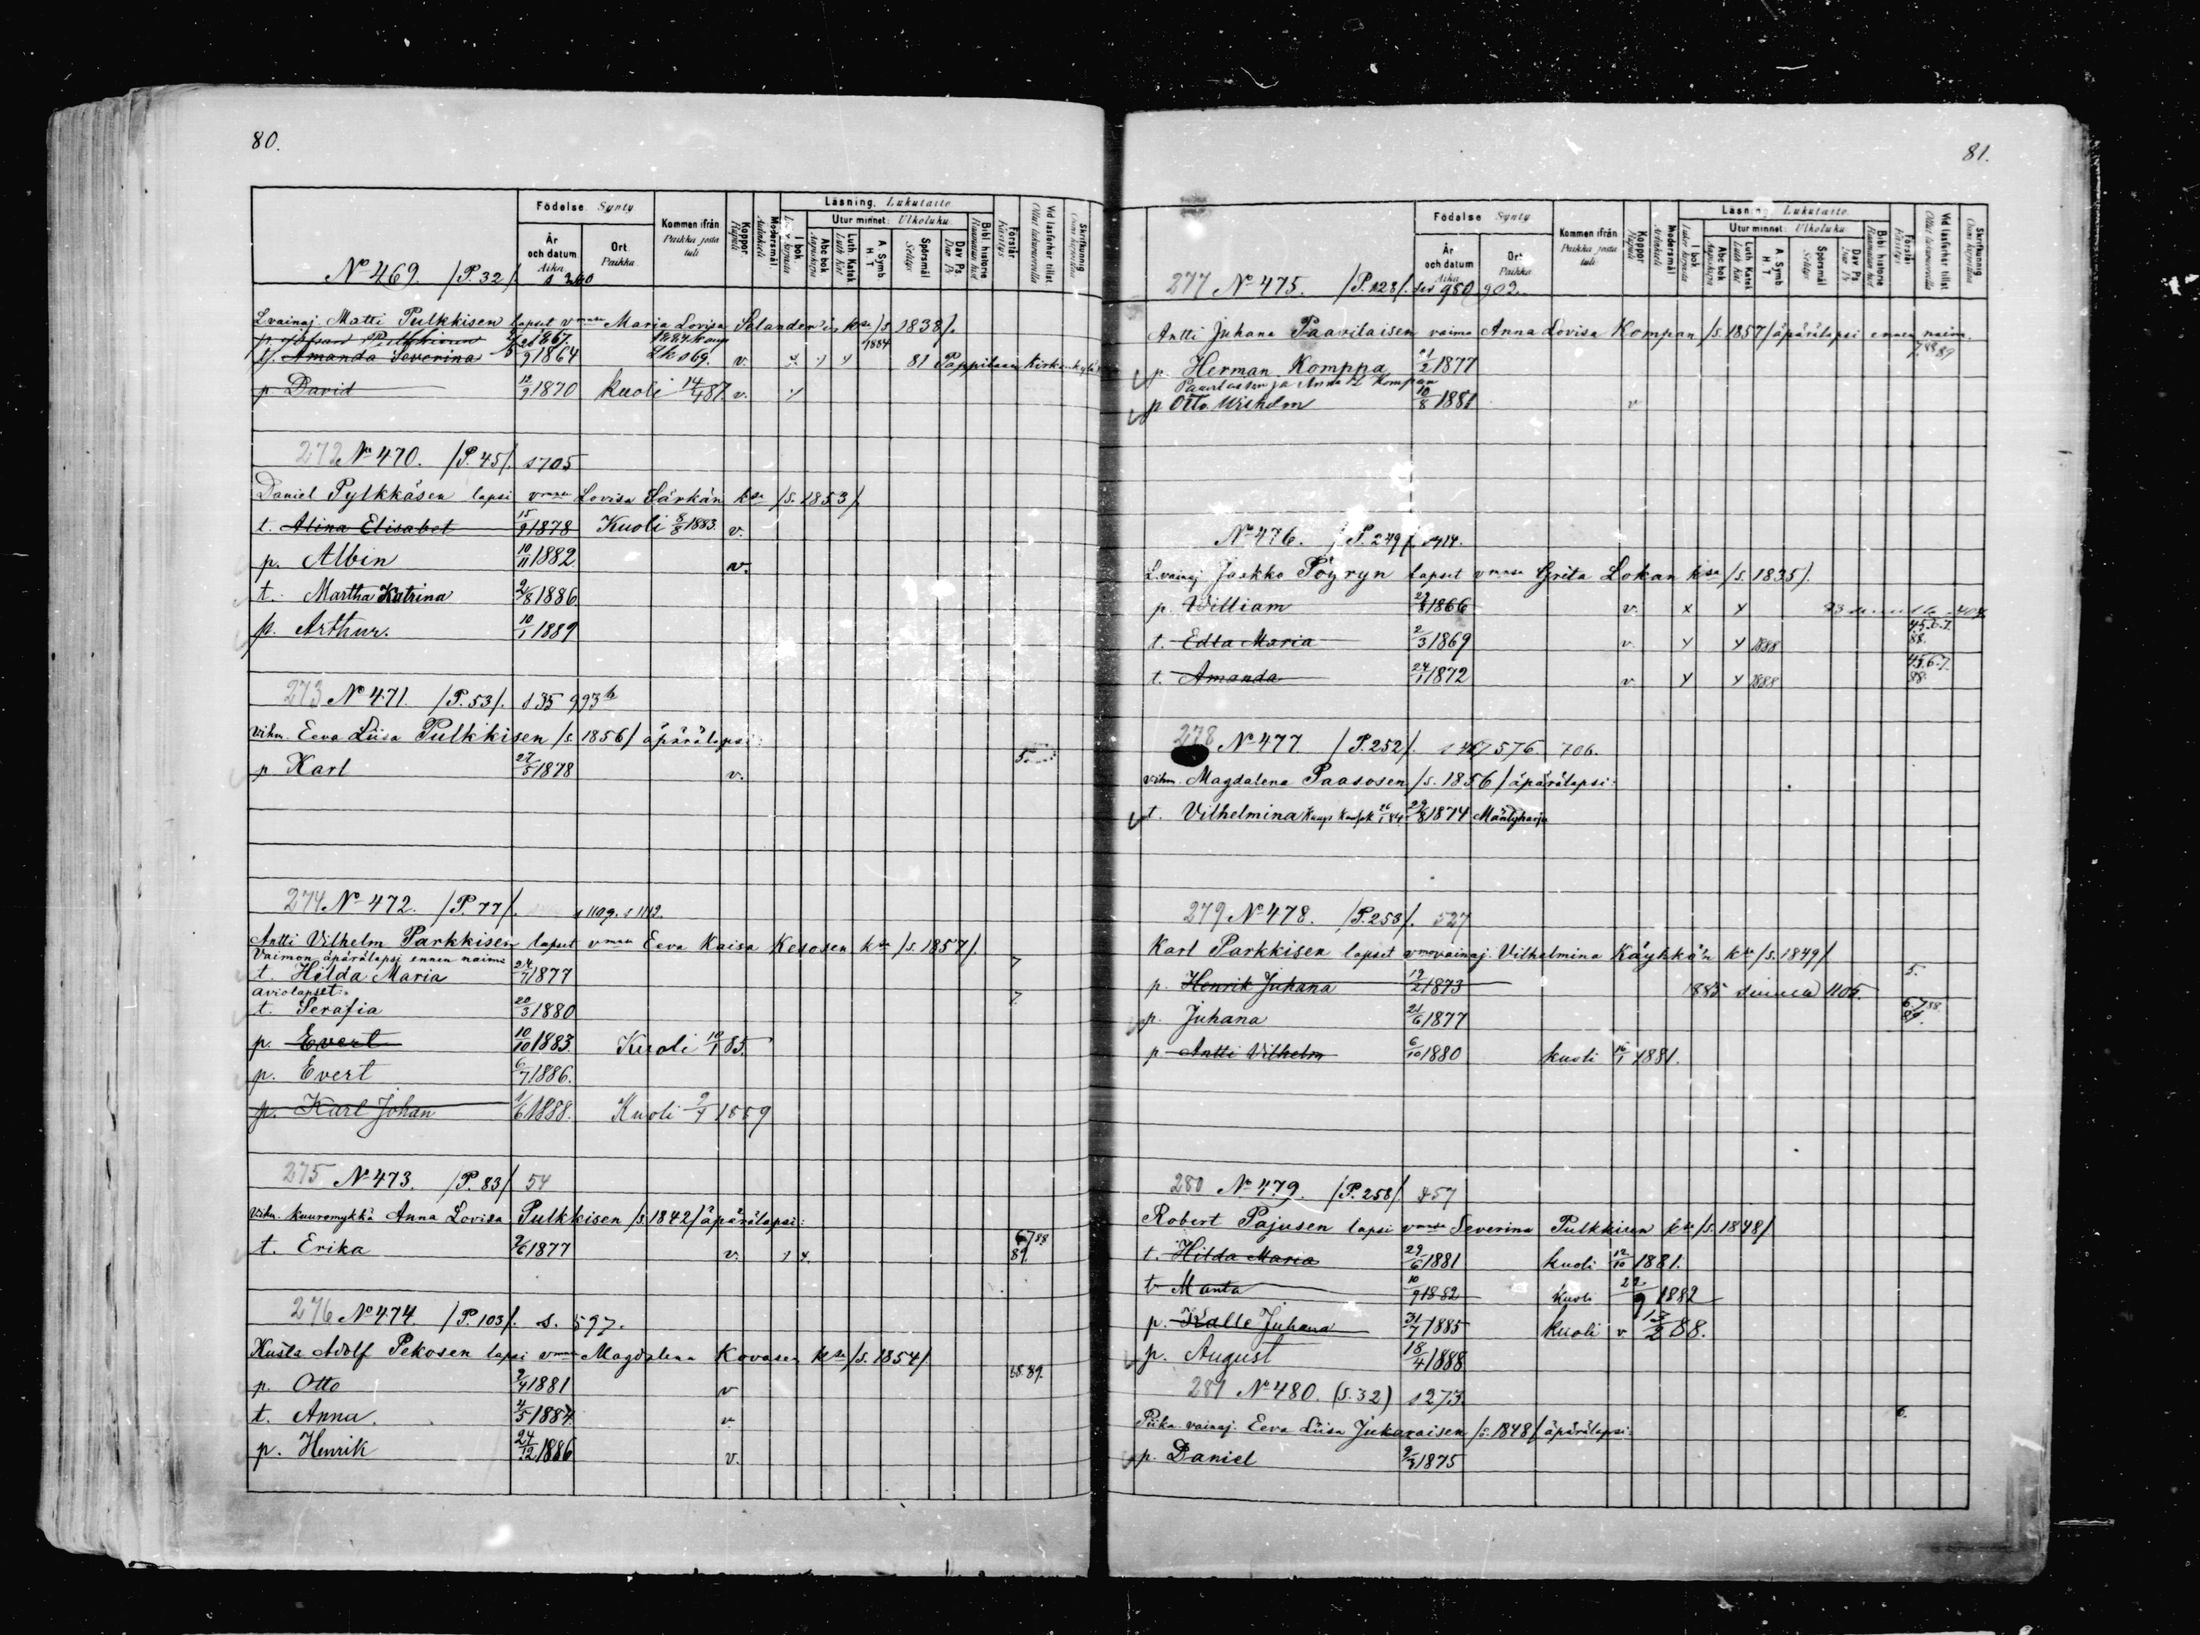 80.
Födelse. Synty
Läsning. Lukutaito
Kommen ifrån
Paikka josta tuli
Koppor
Rupuli
Modersmål
Äidinkieli
I bok
Utur minnet: Ulkoluku
Abc bok
Luth. Katek
A. Symb. H T
Spörsmål
Dav. Ps
Bibl. historie
Förstår
Käsitys
Vid läsförhör tillst.
Skrifkunnig
År och datum
Aika
Ort
Paikka
No 469. /P. 32/.
L. vainaj. Matti Pulkkisen lapset vmnsa Maria Lovisa Selanderin ksa /s. 1838/.
1867.
t. Amanda Severina 9 1864 v. 1884 81 Pappilaan Kirkonkylä
p. David 12/9 1870 kuoli 14/4 87. v.
272 No 470. /P. 45/. s 705
Daniel Pylkkäsen lapsi vmnsa Lovisa Särkän ksa /s. 1853/.
t. Alina Elisabet 15/9 1878 Kuoli 8/8 1883. v.
p. Albin 10/11 1882 v.
t. Martha Katrina 2/8 1886
p. Arthur. 10/1 1889
273 No 471. /P. 53/. s 35 993 b
vihm. Eeva Liisa Pulkkisen /s. 1856/ äpärälapsi:
p. Karl 27/5 1878 v. 5.
274 No 472. /P. 77/. s 1109. s 1112.
Antti Vilhelm Parkkisen lapset vmnsa Eeva Kaisa Kesosen ksa /s. 1857/.
Vaimon äpärälapsi ennen naim:
t. Hilda Maria 24/7 1877 7
aviolapset:
t. Serafia 20/3 1880 7.
p. Evert 10/10 1883. Kuoli 10/1 85.
p. Evert 6/7 1886.
p. Karl Johan 1/6 1888. Kuoli 9/4 1889
275 No 473. /P. 83/ 54
vihm. kuuromykkä Anna Lovisa Pulkkisen /s. 1842/ äpärälapsi:
t. Erika 2/6 1877 v. 6.7 88 89.
276 No 474 /P. 103/. s. 597.
Kusta Adolf Pekosen lapsi vmnsa Magdalena Kovasen ksa /s. 1854/
p. Otto 2/4 1881 v 88.89.
t. Anna. 4/5 1884. v.
p. Henrik 24/12 1886 v.
81.
Födelse Synty
Läsning. Lukutaito.
Kommen ifrån
Paikka josta tuli
Koppor
Rupuli
Modersmål
Äidinkieli
I bok
Utur minnet: Ulkoluku
Abc bok
Luth. Katek
A. Symb. H T
Spörsmål
Dav. Ps
Bibl. historie
Förstår
Käsitys
Vid läsförhör tillst.
Skrifkunnig
År och datum
Aika
Ort
Paikka
277 No 475. /P. 128/. 980 902.
Antti Juhana Paarilaisen vaimo Anna Lovisa Kompan /s. 1857/ äpärälapsi ennen naim.
p. Herman Komppa 21/2 1877 7. 88 89
Paarilaisen ja Anna L Kompan
p. Otto Wilhelm 10/8 1881 v
No 476. /P. 249/. s 414.
L. vainaj. Jaakko Pöyryn lapset vmnsa Grita Lokan ksa /s. 1835/.
p. William 29/8 1866 v.
t. Edla Maria 2/3 1869 v. 1888 4.5.6.7. 88.
t. Amanda 24/1 1872 v. 1888 4.5.6.7. 88.
278 No 477 /P. 252/. 576. 706.
vihm. Magdalena Paasosen /s. 1856/ äpärälapsi:
t. Vilhelmina 29/8 1874 Mäntyharju
279 No 478. /P. 253/. 527
Karl Parkkisen lapset vmovainaj. Vilhelmina Käyhkä'n ksa /s. 1849/
p. Henrik Juhana 1873 1885 sivulla 1105. 5.
p. Juhana 21/6 1877 6.7 88. 89.
p. Antti Vilhelm 6/10 1880 kuoli 16/1 1881.
280 No 479. /P. 258/ 857
Robert Pajusen lapsi vmnsa Severina Pulkkisen ksa /s. 1848/
t. Hilda Maria 29/6 1881 kuoli 12/10 1881.
t. Manta 10/9 1882 kuoli 22/9 1882
p. Kalle Juhana 31/7 1885 kuoli v 13/2 88.
p. August 18/4 1888
281 No 480. (S. 32) s 273.
Piika vainaj. Eeva Liisa Jukaraisen /s. 1848/ äpärälapsi: 6.
p. Daniel 1875